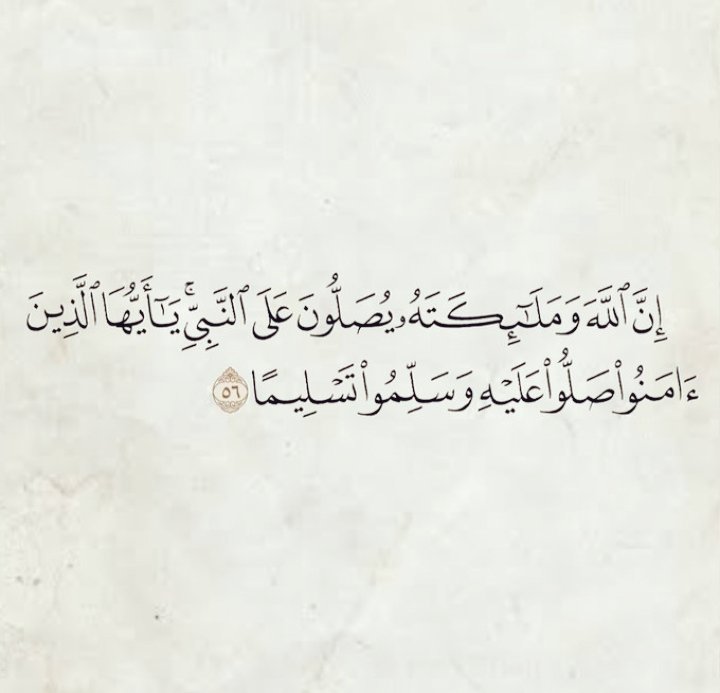 إِنَّ ٱللَّهَ وَمَلَـٰٓئِكَتَهُۥ يُصَلُّونَ عَلَى ٱلنَّبِىِّ ۚ يَـٰٓأَيُّهَا ٱلَّذِينَ
ءَامَنُوا۟ صَلُّوا۟ عَلَيْهِ وَسَلِّمُوا۟ تَسْلِيمًا ٥٦